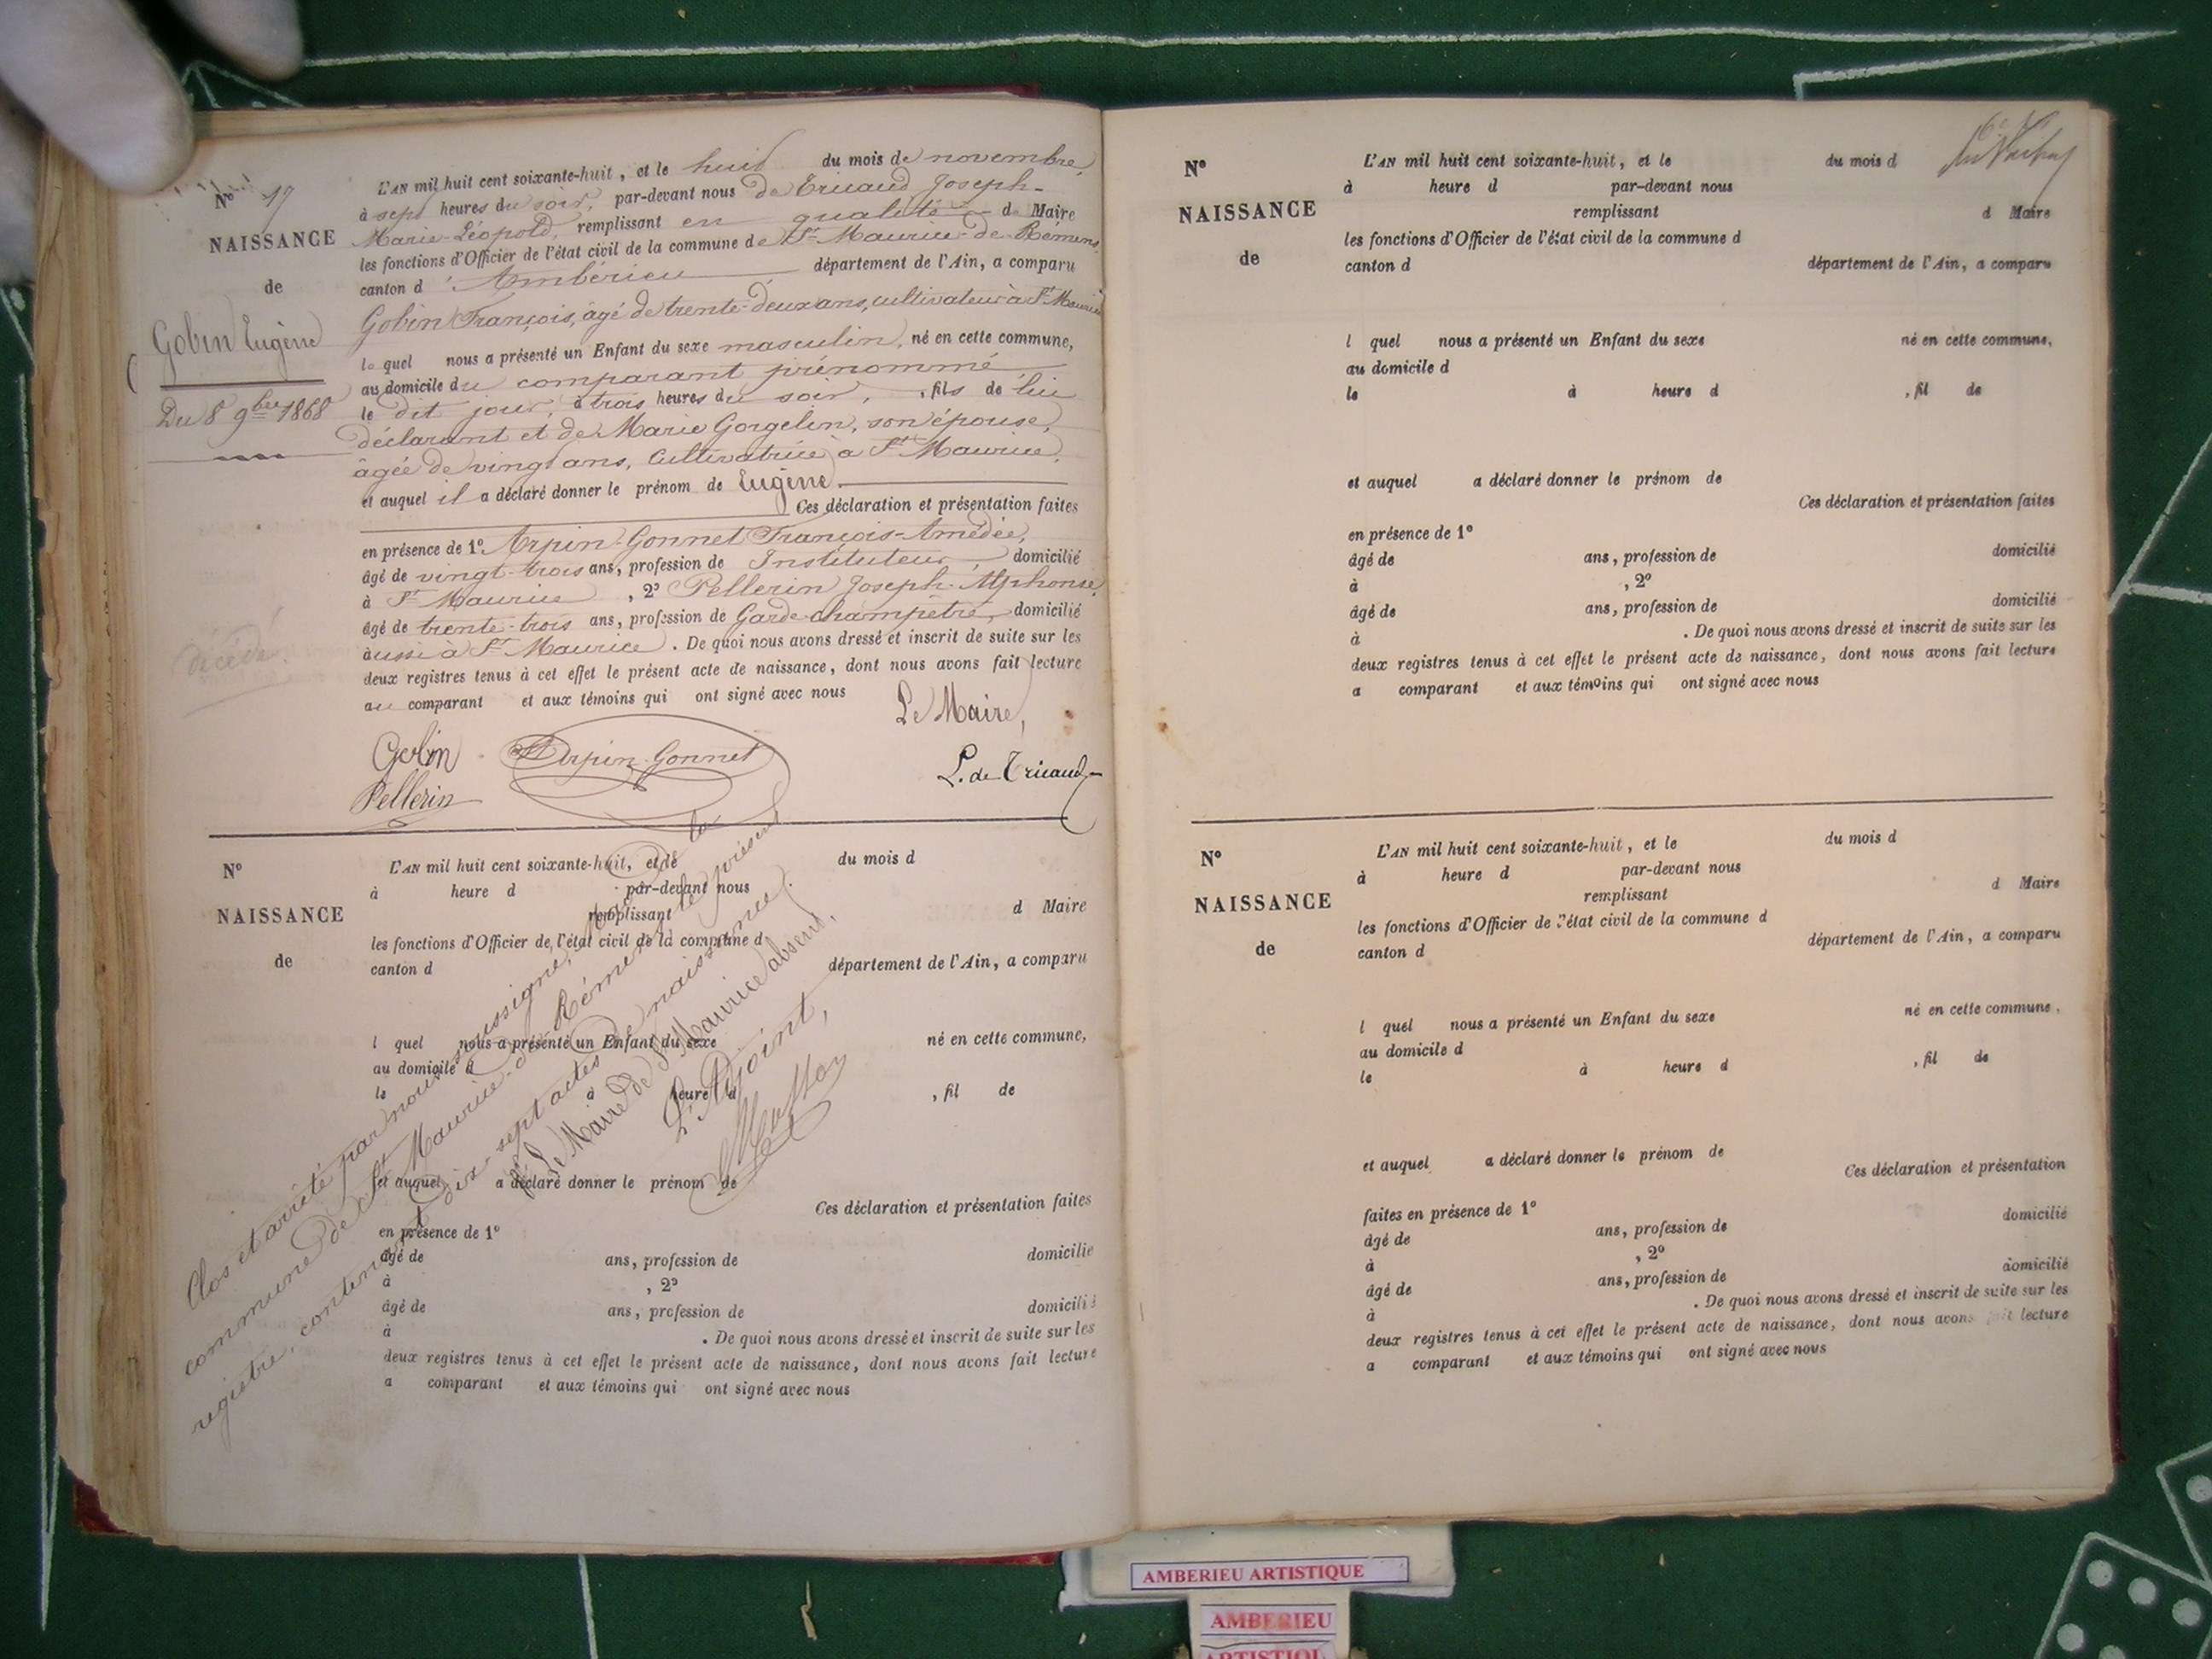 N° 17
NAISSANCE
de
Gobin Eugène
Du 8 9bre 1868
décédé.
L'AN mil huit cent soixante-huit, et le huit du mois de novembre,
à sept heures du soir, par-devant nous de Tricaud Joseph-
Marie-Léopold, remplissant en qualité de Maire
les fonctions d'Officier de l'état civil de la commune de St Maurice-de-Rémens,
canton d'Ambérieu département de l'Ain, a comparu
Gobin François, âgé de trente-deux ans, cultivateur à St Maurice
lequel nous a présenté un Enfant du sexe masculin, né en cette commune,
au domicile du comparant prénommé
le dit jour, à trois heures du soir, fils de lui
déclarant et de Marie Gorgelin, son épouse,
âgée de vingt ans, Cultivatrice à St Maurice,
et auquel il a déclaré donner le prénom de Eugène.
Ces déclaration et présentation faites
en présence de 1° Arpin-Gonnet François-Amédée,
âgé de vingt-trois ans, profession de Instituteur domicilié
à St Maurice, 2° Pellerin Joseph-Alphonse,
âgé de trente-trois ans, profession de Garde-champêtre, domicilié
aussi à St Maurice. De quoi nous avons dressé et inscrit de suite sur les
deux registres tenus à cet effet le présent acte de naissance, dont nous avons fait lecture
au comparant et aux témoins qui ont signé avec nous
Le Maire,
Gobin Arpin-Gonnet
L. de Tricaud
Pellerin
N°
NAISSANCE
de
L'AN mil huit cent soixante-huit, et le du mois d
à heure d par-devant nous
remplissant d Maire
les fonctions d'Officier de l'état civil de la commune d
canton d département de l'Ain, a comparu
l quel nous a présenté un Enfant du sexe né en cette commune,
au domicile d
le à heure d , fil de
et auquel a déclaré donner le prénom de
Ces déclaration et présentation faites
en présence de 1°
âgé de ans, profession de domicilié
à , 2°
âgé de ans, profession de domicilié
à . De quoi nous avons dressé et inscrit de suite sur les
deux registres tenus à cet effet le présent acte de naissance, dont nous avons fait lecture
a comparant et aux témoins qui ont signé avec nous
Clos et arrêté par nous soussigné, de la
commune de St Maurice-de-Rémens, le présent
registre, contenant dix-sept actes de naissance.
pr Le Maire de St Maurice absent,
L'Adjoint,
N°
NAISSANCE
de
L'AN mil huit cent soixante-huit, et le du mois d
à heure d par-devant nous
remplissant d Maire
les fonctions d'Officier de l'état civil de la commune d
canton d département de l'Ain, a comparu
l quel nous a présenté un Enfant du sexe né en cette commune,
au domicile d
le à heure d , fil de
et auquel a déclaré donner le prénom de
Ces déclaration et présentation faites
en présence de 1°
âgé de ans, profession de domicilié
à , 2°
âgé de ans, profession de domicilié
à . De quoi nous avons dressé et inscrit de suite sur les
deux registres tenus à cet effet le présent acte de naissance, dont nous avons fait lecture
a comparant et aux témoins qui ont signé avec nous
N°
NAISSANCE
de
L'AN mil huit cent soixante-huit, et le du mois d
à heure d par-devant nous
remplissant d Maire
les fonctions d'Officier de l'état civil de la commune d
canton d département de l'Ain, a comparu
l quel nous a présenté un Enfant du sexe né en cette commune,
au domicile d
le à heure d , fil de
et auquel a déclaré donner le prénom de
Ces déclaration et présentation
faites en présence de 1° domicilié
âgé de ans, profession de
à , 2°
âgé de ans, profession de domicilié
à . De quoi nous avons dressé et inscrit de suite sur les
deux registres tenus à cet effet le présent acte de naissance, dont nous avons fait lecture
a comparant et aux témoins qui ont signé avec nous
AMBERIEU ARTISTIQUE
AMBERIEU